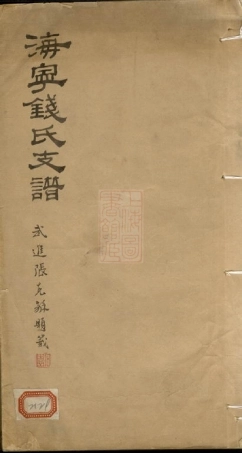 海寧錢氏支譜
武進張
題簽